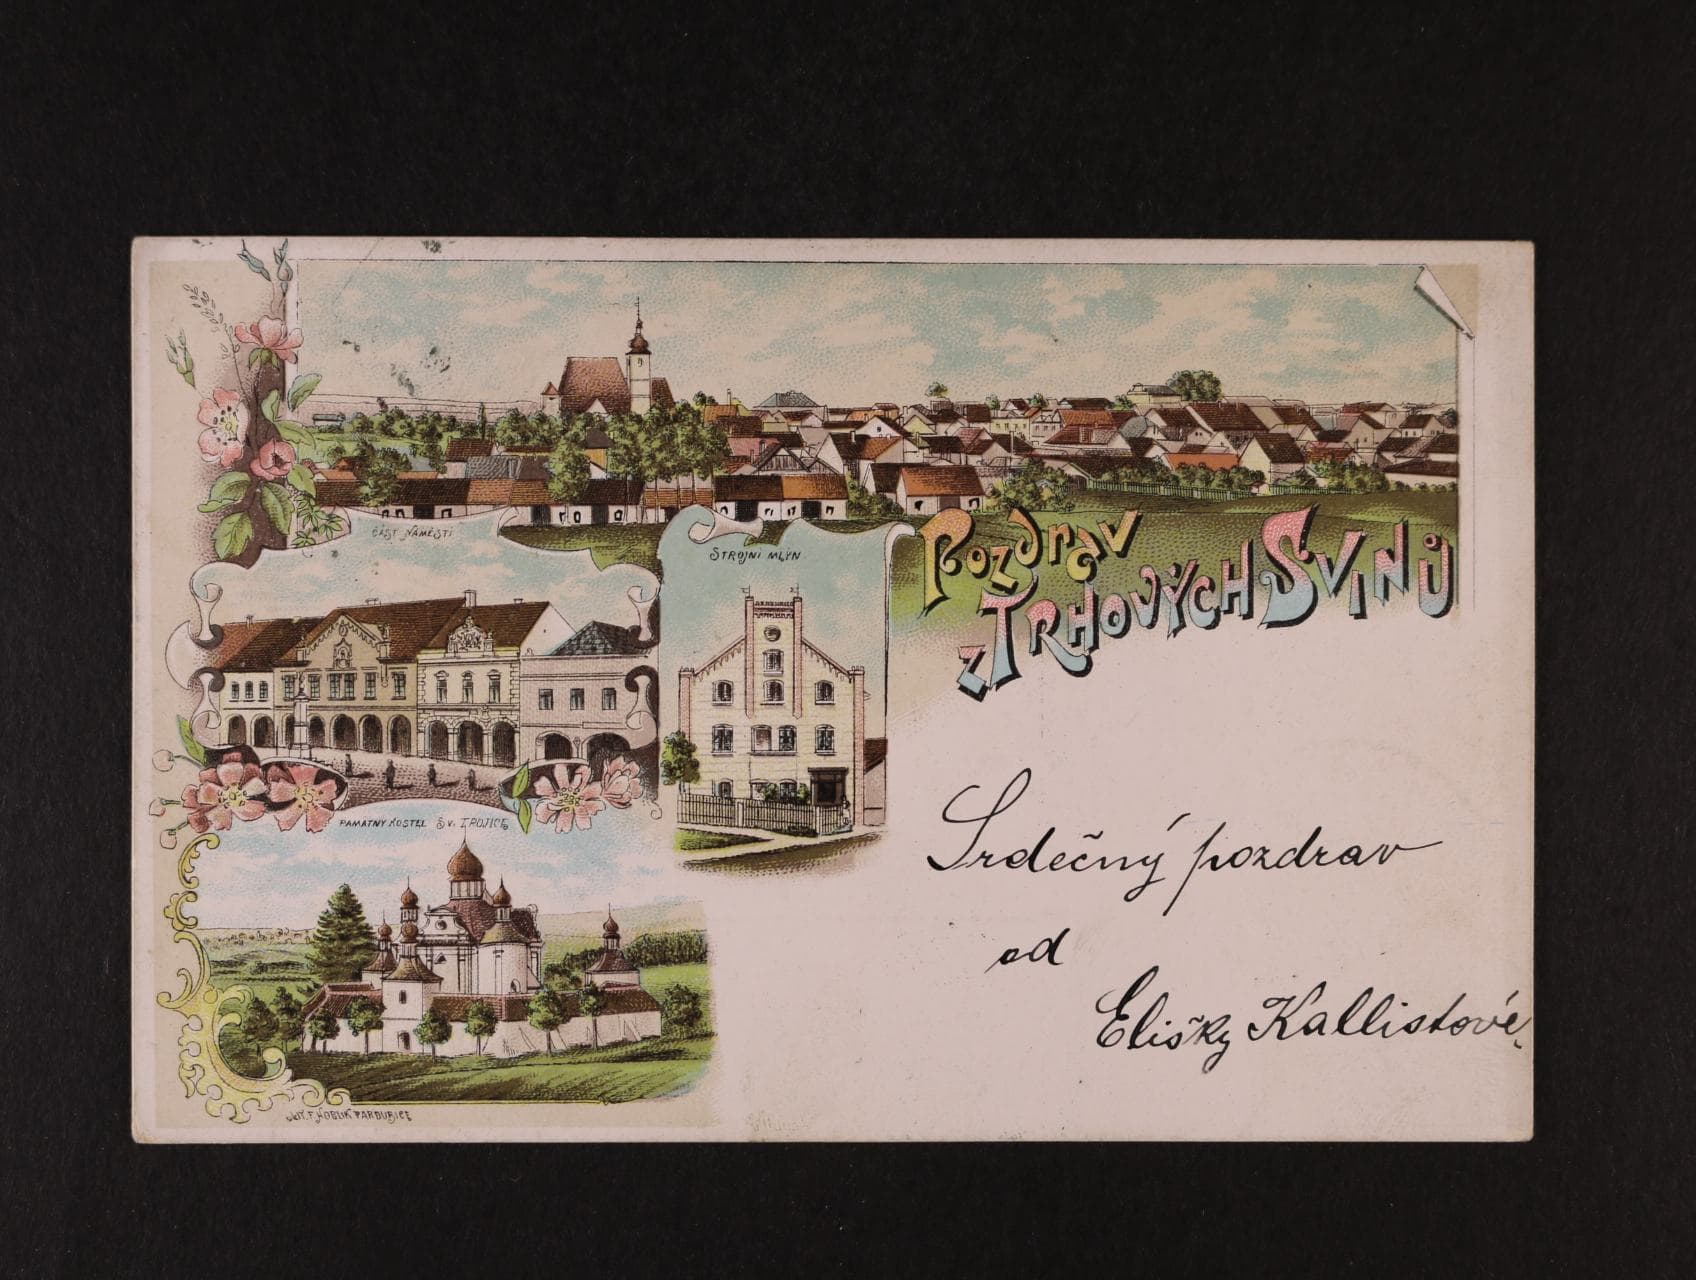 Pozdrav
z Trhových Svinů
ČÁST NÁMĚSTÍ
STROJNÍ MLÝN
PAMÁTNÝ KOSTEL SV. TROJICE
Srdečný pozdrav
od
Elišky Kallistové.
LIT. F. HOBLÍK PARDUBICE